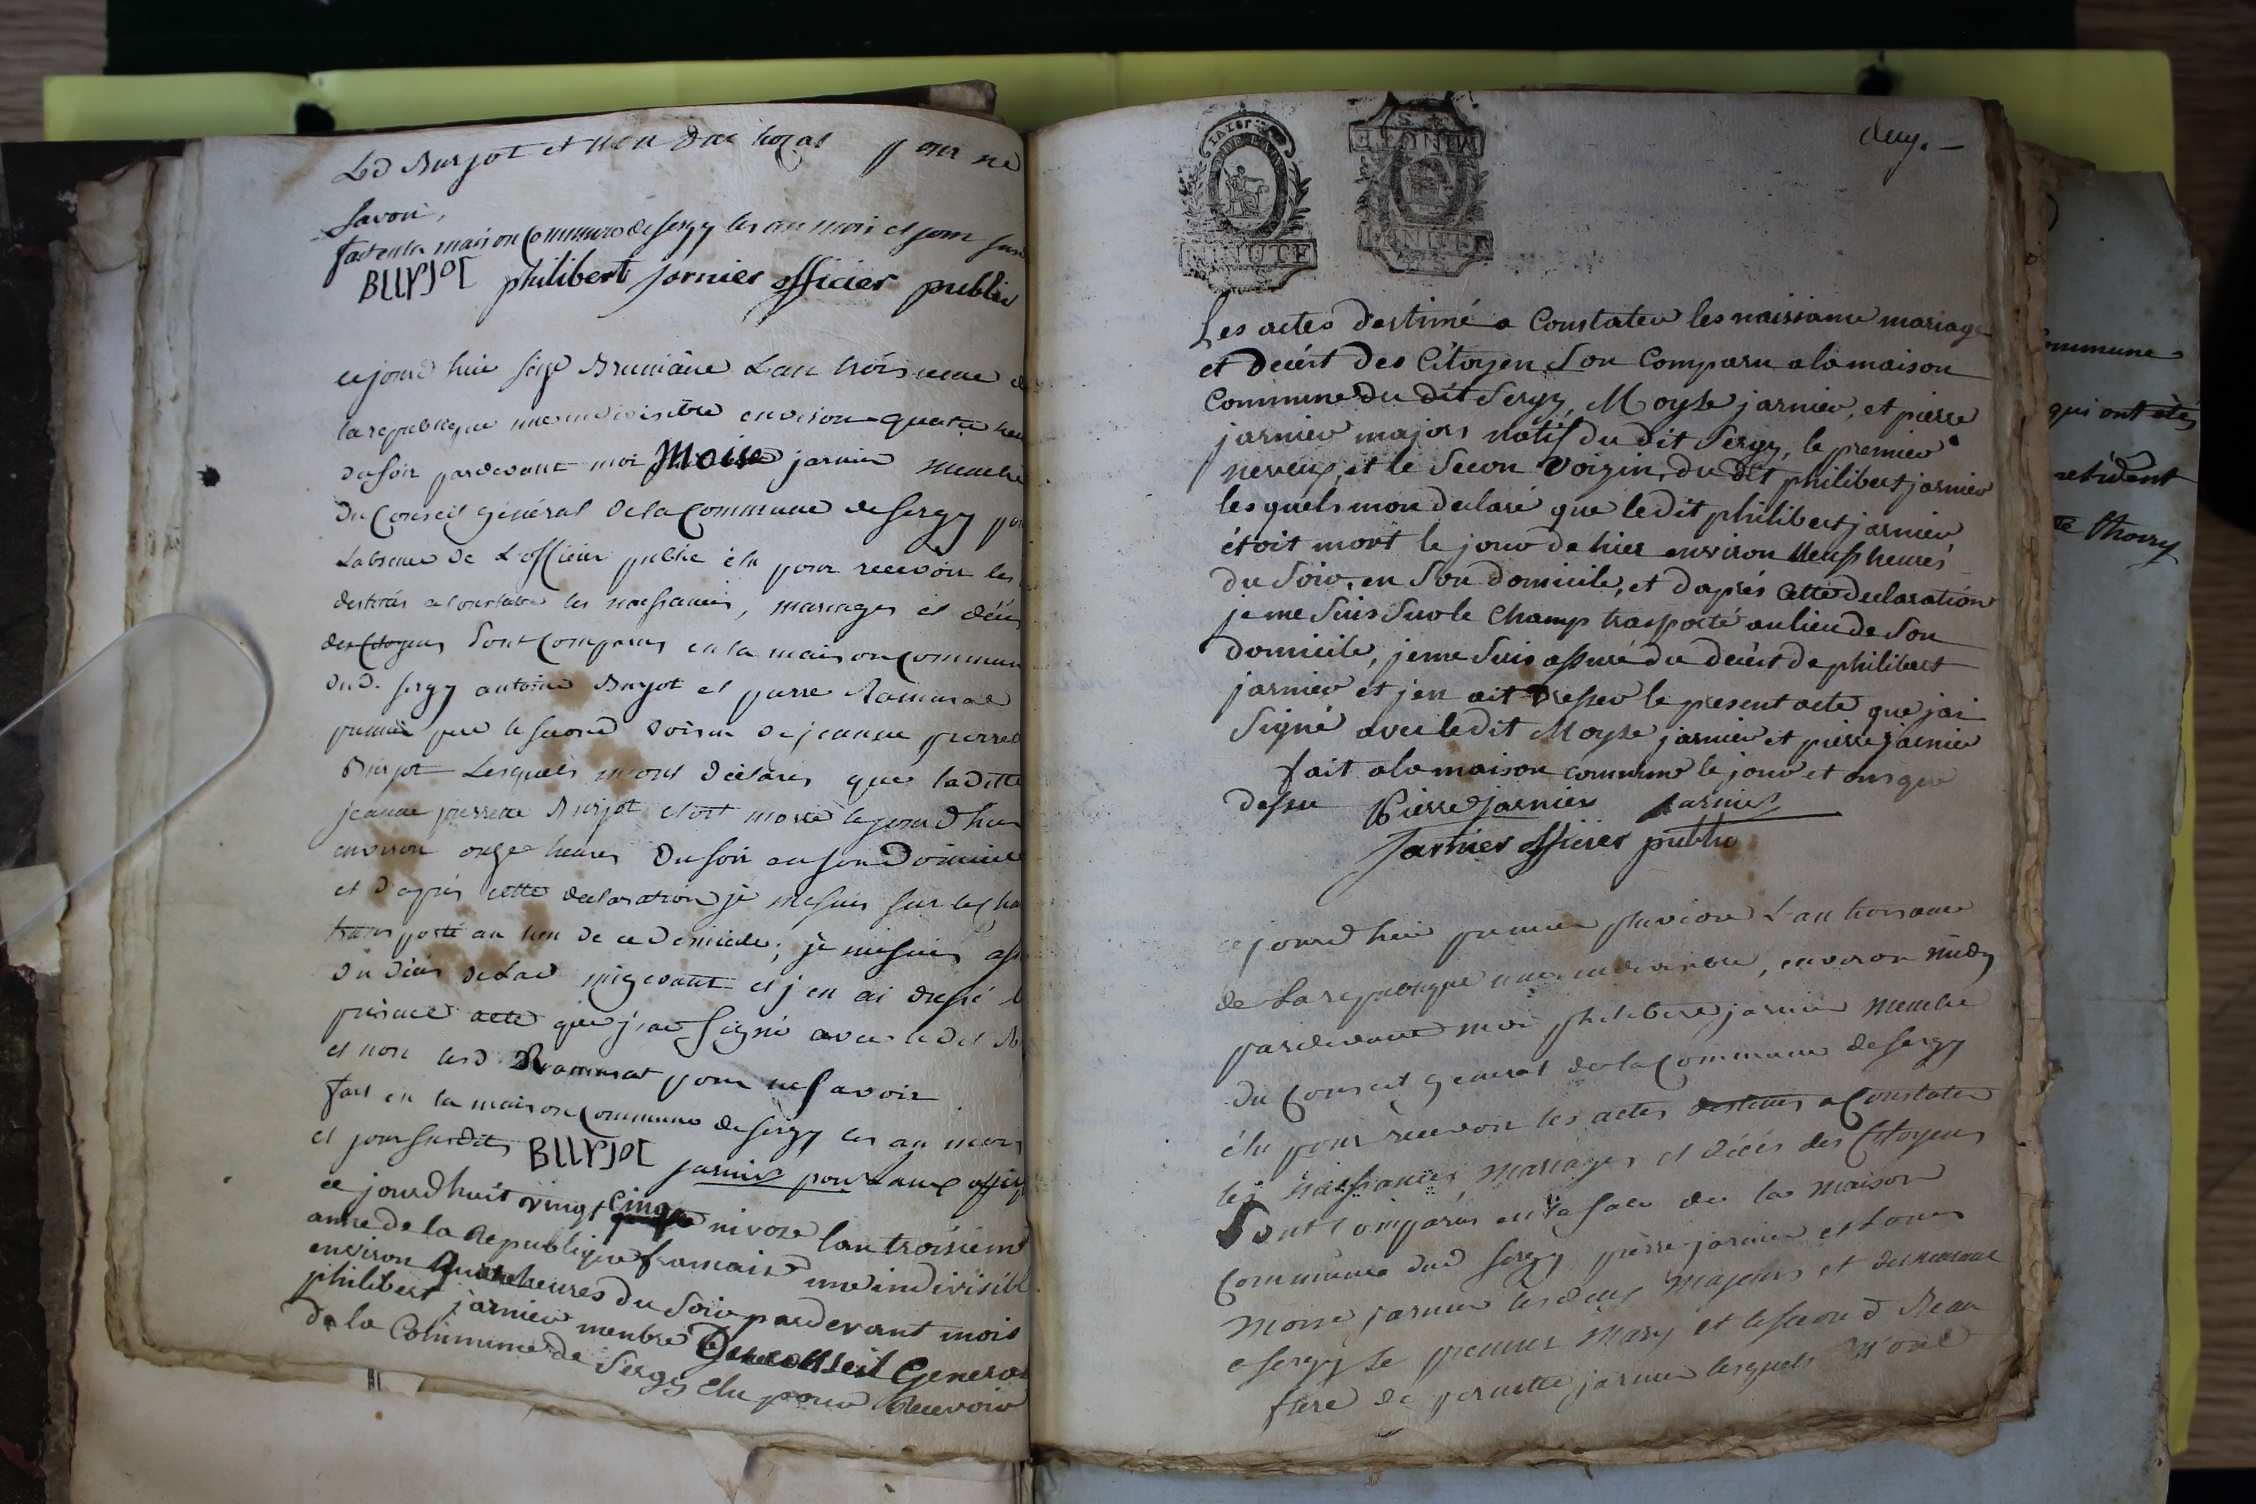 Led Burjot et non pour ne
Savoir,
fait en la maison Commune de Sergy les an mois et jour
BURJOT philibert jarnier officier public
ce jourd'hui seize Brumaire L'an troisieme
la republique une indivisible environ quatre
du soir pardevant moi Moise jarnier membre
Du Conseil général de la Commune de Sergy
L'absence de L'officier public élu pour recevoir les
destinés a Constater les naissances, mariages et décés
des Citoyens Sont Comparus en la maison Commune
dud. Sergy antoine Burjot et pierre Ramusat
premier pere le second voisin de jeanne pierrette
Burjot Lesquels mont déclarés que laditte
jeanne pierrette Burjot etoit morte le jourd'hui
environ onze heures Du soir en son Domicile
et d'après cette declaration je me suis sur le
transporté au lieu de ce domicile, je me suis
du décés de Lad et j'en ai dressé
présent acte que j'ai Signé avec ledit
et non led Ramusat pour ne savoir
fait en la maison Commune de Sergy les an mois
et jour susdits BURJOT
jarnier pour
ce jourdhuit vingt cinq nivose lan troisieme
anne de la Republique francaise une indivisible
environ heures du Soir pardevant mois
philibert jarnier menbre Du conseil General
de la Commune de Sergy elu pour Recevoir
MINUTE
MINUTE
deux.
Les actes destiné a Constater les naissance mariage
et decért des Citoyen Son Comparu a la maison
Commune du dit Sergy, Moyse jarnier, et pierre
jarnier majors natif du dit Sergy, le premier
neveux, et le Secon voizin, du dit philibert jarnier
lesquels mon declaré que le dit philibert jarnier
étoit mort le jour de hier environ neuf heures
du Soir, en Son domicile, et daprés cette declaration
je me Suis Sur le Champ trasporté au lieu de Son
domicile, je me Suis assuré du decért de philibert
jarnier et jen ait dresser le present acte que jai
Signé avec le dit Moyse jarnier et pierre jarnier
fait a la maison commune le jour et ans que
dessu Pierre jarnier jarnier
jarnier officier public
ce jourd'hui premier pluviose L'an troisieme
de La republique une indivisible, environ midy
pardevant moi philibert jarnier membre
du Conseil general de la Commune de Sergy
élu pour recevoir les actes destinés a Constater
les naissances mariages et décés des Citoyens
Sont Comparus en la face de la maison
Commune dud Sergy pierre jarnier et
Moise jarnier les deux majeurs et demeurant
a Sergy le premier Mary et le second Beau
frere de pernette jarnier lesquels m'ont
ommune
qui ont étés
résident
thoiry